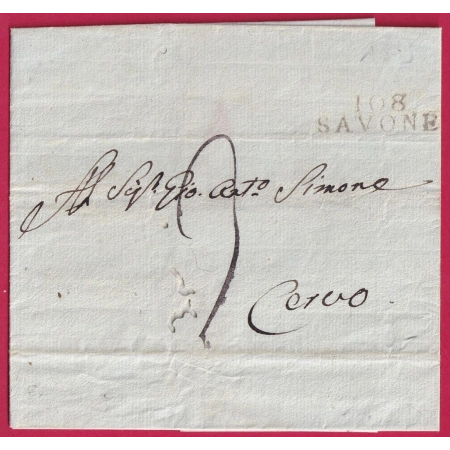 108
SAVONE
Al Sig.r Gio. Ant.o Simone
3
Cervo.